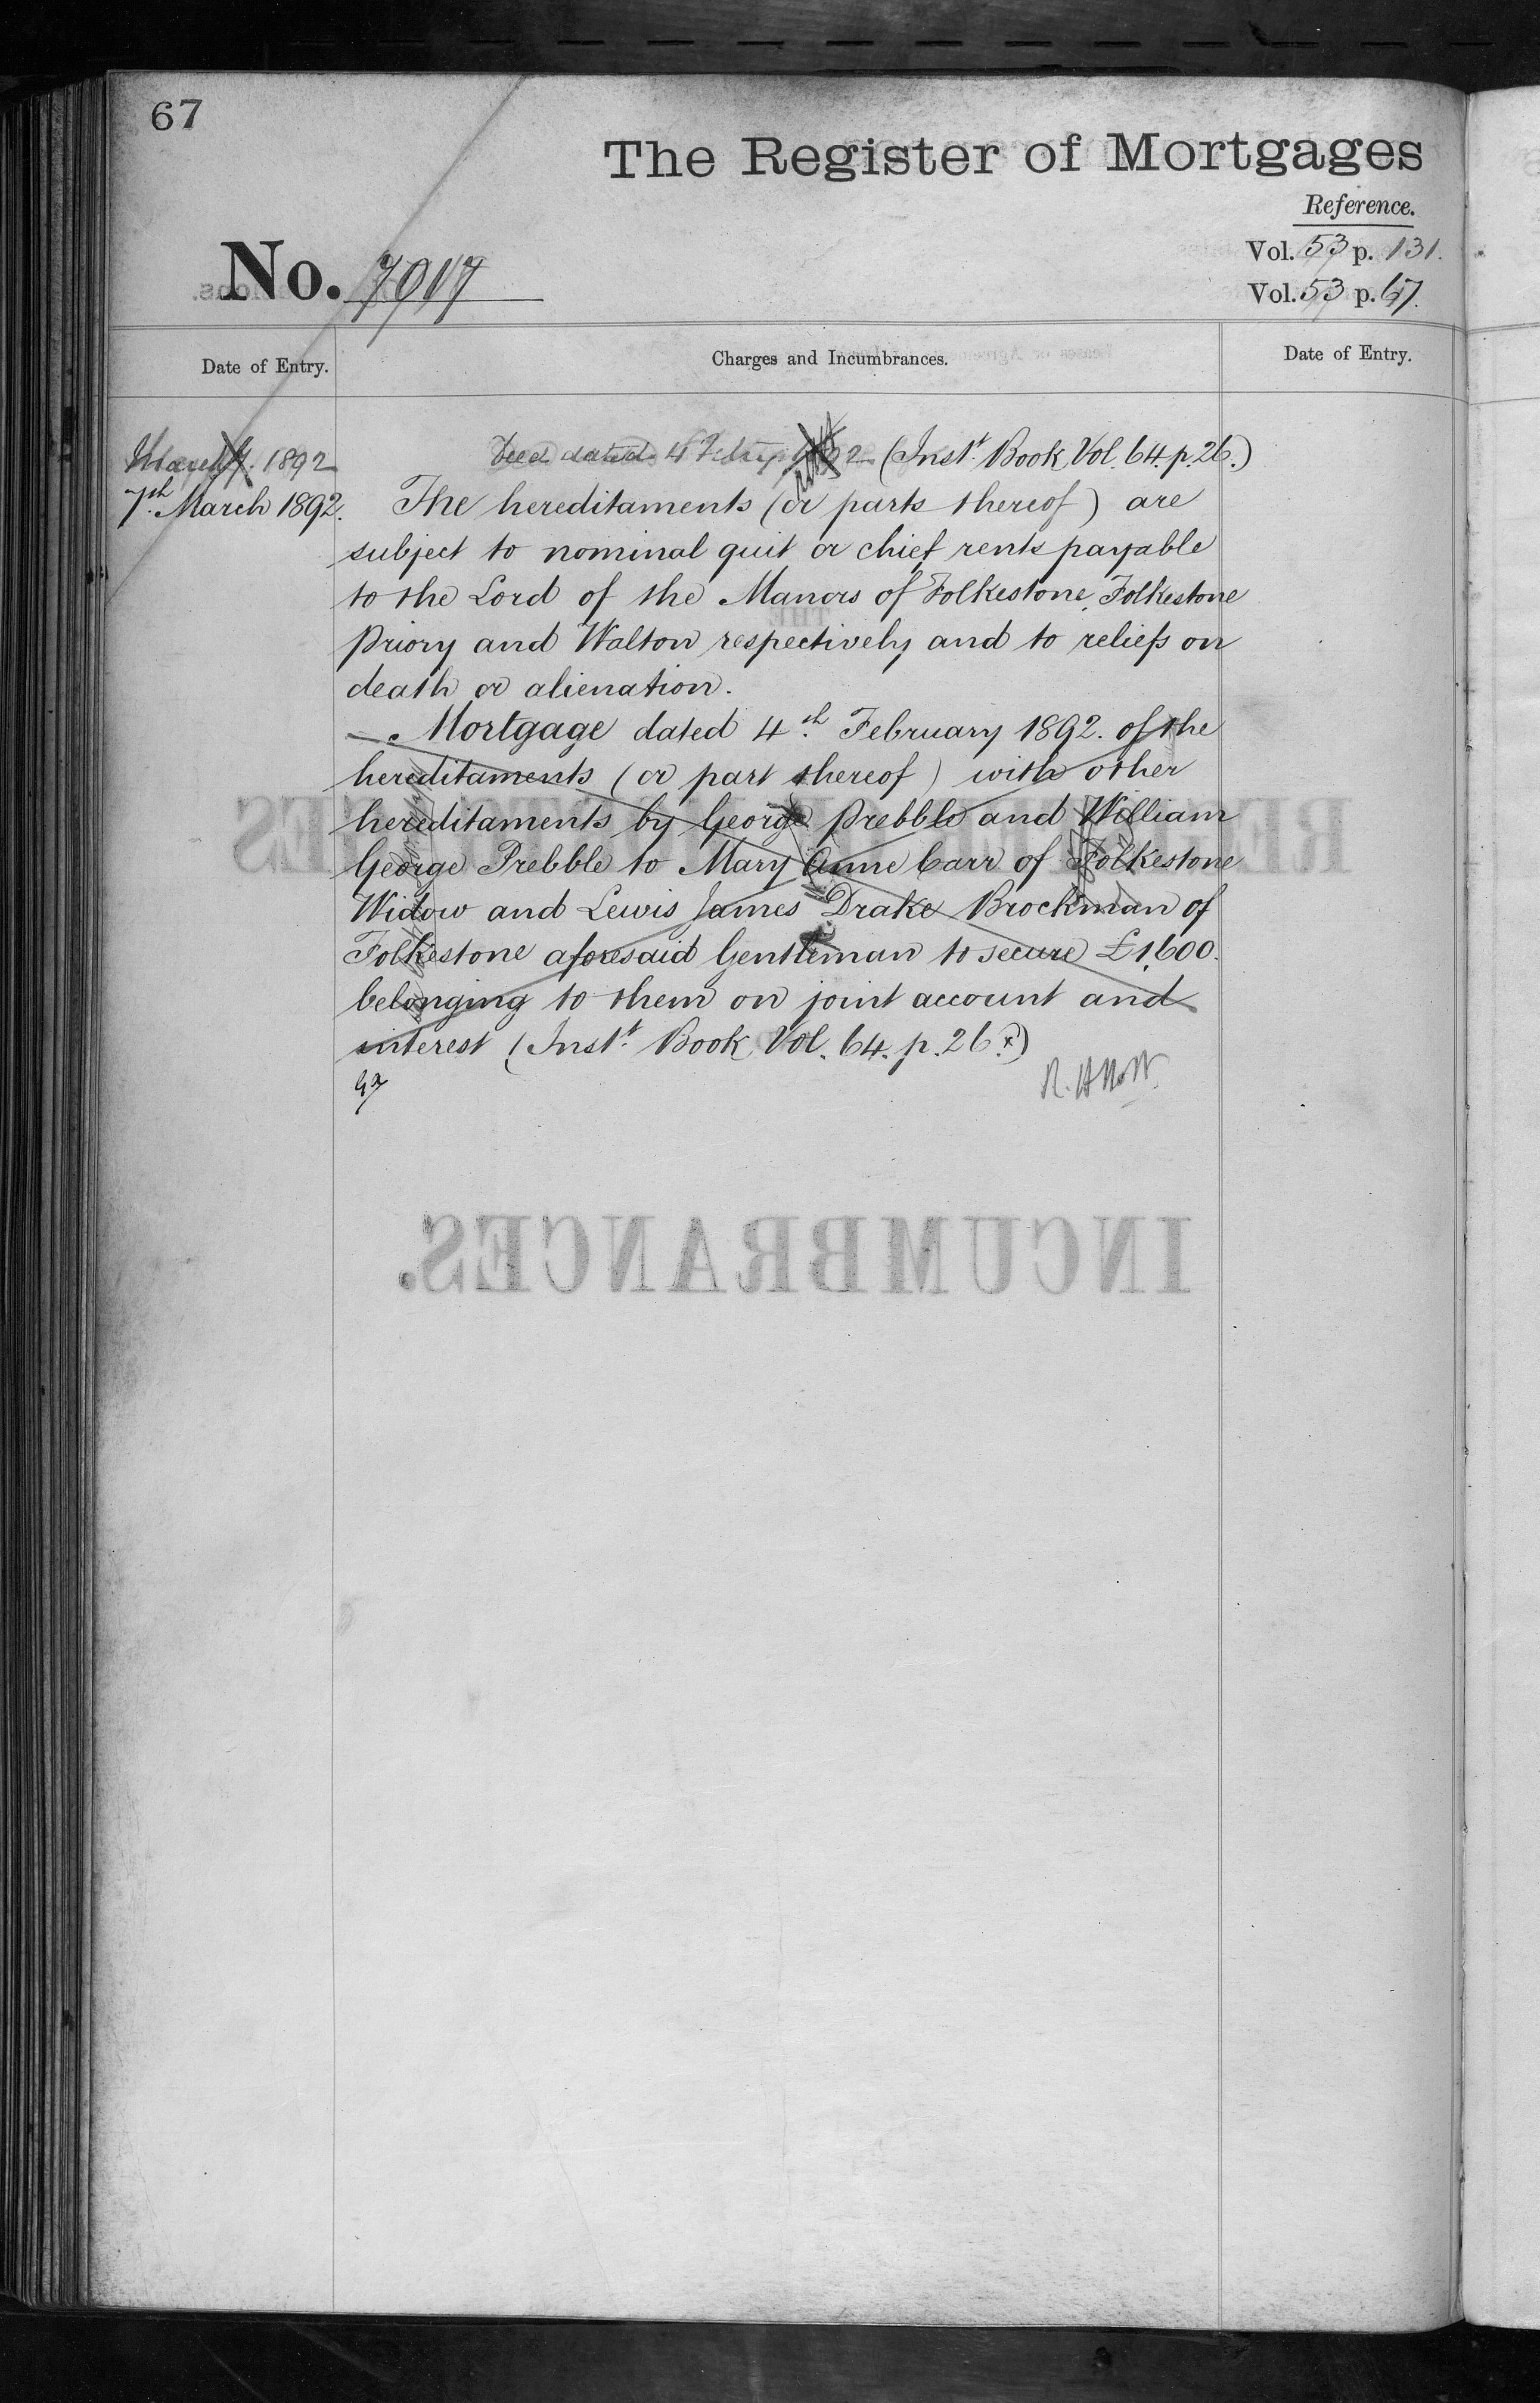 67
The Register of Mortgages
Reference.
Vol. 53 p. 131.
No. 7017
Vol. 53 p. 67.
Date of Entry.
Charges and Incumbrances.
Date of Entry.
March 7. 1892
Deed dated 4 Feby 1892 (Inst. Book, Vol. 64. p. 26.)
7th March 1892.
The hereditaments (or parts thereof) are
subject to nominal quit or chief rents payable
to the Lord of the Manors of Folkestone, Folkestone
Priory and Walton respectively and to reliefs on
death or alienation.
Mortgage dated 4th February 1892. of the
hereditaments (or part thereof) with other
hereditaments by George Prebble and William
George Prebble to Mary Anne Carr of Folkestone
Widow and Lewis James Drake Brockman of
Folkestone aforesaid Gentleman to secure £1,600.
belonging to them on joint account and
interest (Inst. Book, Vol. 64. p. 26.)
INCUMBRANCES.